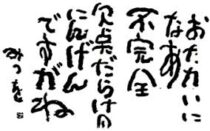 おたがいに
なあ
不完全
欠点だらけの
にんげん
ですがね
みつを